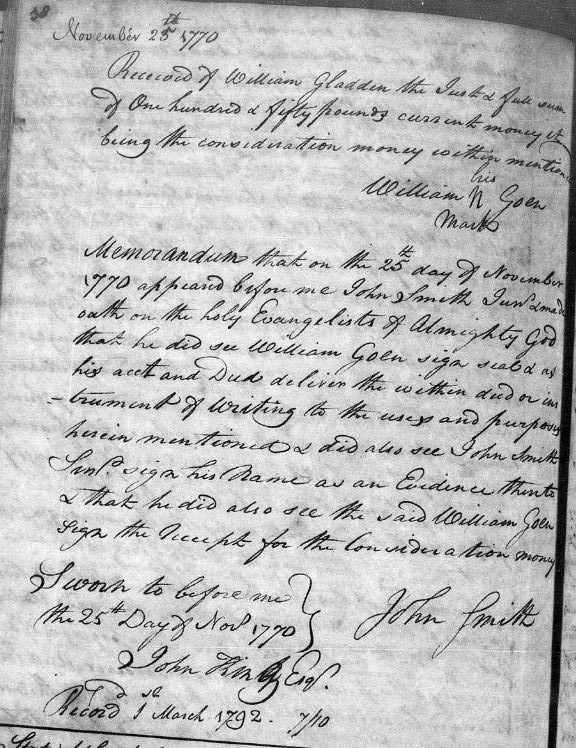 38
November 25th 1770
Received of William Gladden the Just & full sum
of One hundred & fifty pounds current money it
being the consideration money within mention
his
William N Goen
Mark
Memorandum that on the 25th day of November
1770 appeared before me John Smith Junr & made
oath on the holy Evangelists of Almighty God
that he did see William Goen sign seal & as
his act and Deed deliver the within deed or ins
-trument of Writing to the uses and purposes
herein mentioned & did also see John Smith
Senr sign his Name as an Evidence thereto
& that he did also see the said William Goen
sign the Receipt for the Consideration money
Sworn to before me
the 25th Day of Novr 1770
John Smith
John King Esqr.
Record 1st March 1792. 7/10